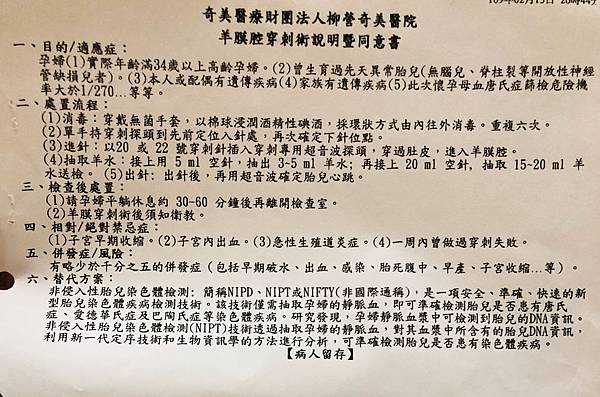 奇美醫療財團法人柳營奇美醫院
羊膜腔穿刺術說明暨同意書
一、目的/適應症：
孕婦(1)實際年齡滿34歲以上高齡孕婦。(2)曾生育過先天異常胎兒(無腦兒、脊柱裂等開放性神經
管缺損兒者)。(3)本人或配偶有遺傳疾病(4)家族有遺傳疾病(5)此次懷孕母血唐氏症篩檢危險機
率大於1/270...等等。
二、處置流程：
(1)消毒：穿戴無菌手套，以棉球浸潤酒精性碘酒，採環狀方式由內往外消毒。重複六次。
(2)單手持穿刺探頭到先前定位入針處，再次確定下針位點。
(3)進針：以20 或 22 號穿刺針插入穿刺專用超音波探頭，穿過肚皮，進入羊膜腔。
(4)抽取羊水：接上用 5 ml 空針，抽出 3~5 ml 羊水; 再接上 20 ml 空針, 抽取 15~20 ml 羊
水送檢。 (5)出針: 出針後，再用超音波確定胎兒心跳。
三、檢查後處置：
(1)請孕婦平躺休息約 30-60 分鐘後再離開檢查室。
(2)羊膜穿刺術後須知衛教。
四、相對/絕對禁忌症：
(1)子宮早期收縮。(2)子宮內出血。(3)急性生殖道炎症。(4)一周內曾做過穿刺失敗。
五、併發症/風險：
有略少於千分之五的併發症（包括早期破水、出血、感染、胎死腹中、早產、子宮收縮...等）。
六、替代方案：
非侵入性胎兒染色體檢測: 簡稱NIPD、NIPT或NIFTY(非國際通稱)，是一項安全、準確、快速的新
型胎兒染色體疾病檢測技術。該技術僅需抽取孕婦的靜脈血，即可準確檢測胎兒是否患有唐氏
症、愛德華氏症及巴陶氏症等染色體疾病。研究發現，孕婦靜脈血漿中可檢測到胎兒的DNA資訊。
非侵入性胎兒染色體檢測(NIPT)技術透過抽取孕婦的靜脈血，對其血漿中所含有的胎兒DNA資訊，
利用新一代定序技術和生物資訊學的方法進行分析，可準確檢測胎兒是否患有染色體疾病。
【病人留存】